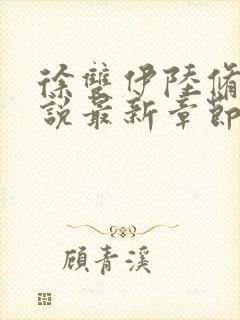 徐雙伊陸脩
說最新章節
顧青溪